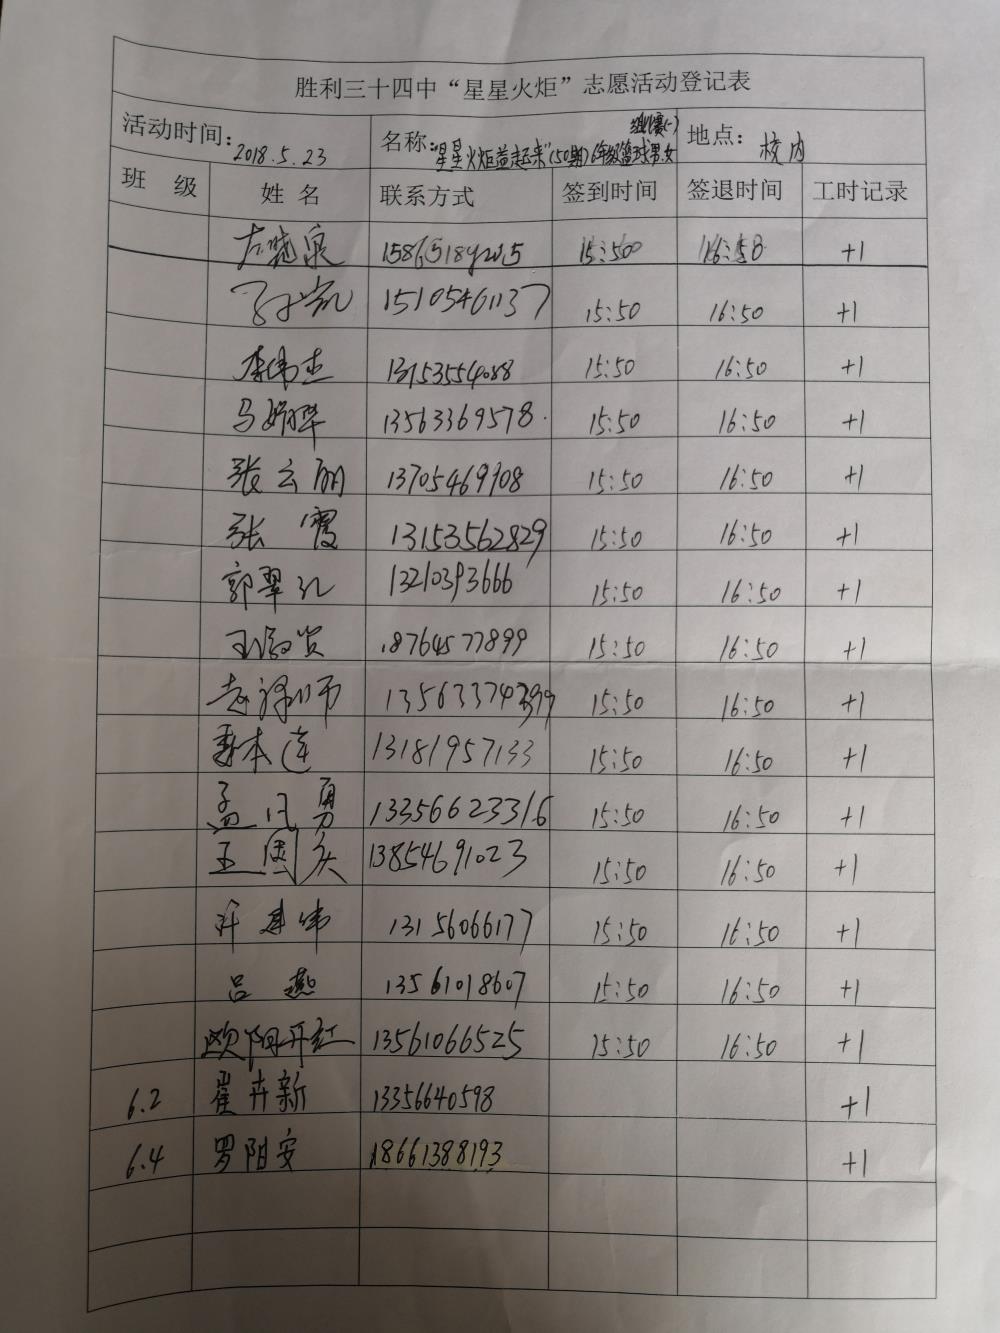 胜利三十四中“星星火炬”志愿活动登记表
活动时间: 2018.5.23 名称: “星星火炬益起来”(50期)6年级篮球男.女 地点: 校内
班 级 姓 名 联系方式 签到时间 签退时间 工时记录
泉 15:50 16:50 +1
15105461137 15:50 16:50 +1
李伟杰 13153554088 15:50 16:50 +1
马 13563369578 15:50 16:50 +1
张云丽 13705469908 15:50 16:50 +1
张 霞 13153562829 15:50 16:50 +1
郭翠红 13210393666 15:50 16:50 +1
18764577899 15:50 16:50 +1
赵 15:50 16:50 +1
本莲 13181957133 15:50 16:50 +1
孟凡勇 13356623316 15:50 16:50 +1
王国庆 13854691023 15:50 16:50 +1
建伟 13156066177 15:50 16:50 +1
吕 燕 13561018607 15:50 16:50 +1
欧阳开红 13561066525 15:50 16:50 +1
6.2 崔卉新 13356640598 +1
6.4 罗阳安 18661388193 +1